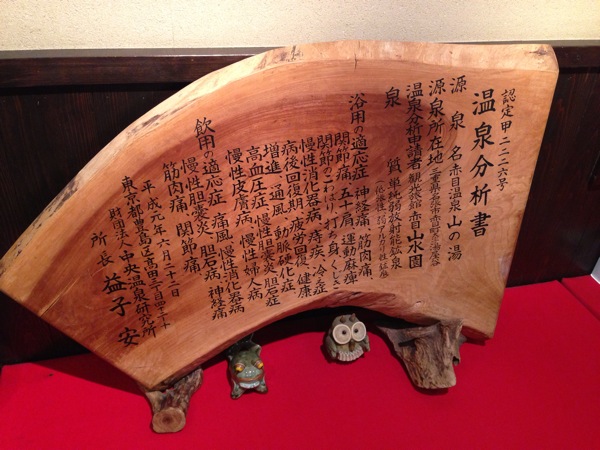 認定甲二二二六号
温泉分析書
源泉名 赤目温泉山の湯
源泉所在地 三重県名張市
温泉分析申請者 観光旅館 赤目山水園
泉質 単純弱放射能鉱泉
浴用の適応症 神経痛 筋肉痛
関節痛 五十肩 運動麻痺
関節のこわばり 打ち身 くじき
慢性消化器病 痔疾 冷え症
病後回復期 疲労回復 健康
増進 通風 動脈硬化症
高血圧症 慢性胆嚢炎 胆石症
慢性皮膚病 慢性婦人病
飲用の適応症 痛風 慢性消化器病
慢性胆嚢炎 胆石病 神経痛
筋肉痛 関節痛
平成元年六月二十二日
東京都豊島区高田
財団法人 中央温泉研究所
所長 益子 安